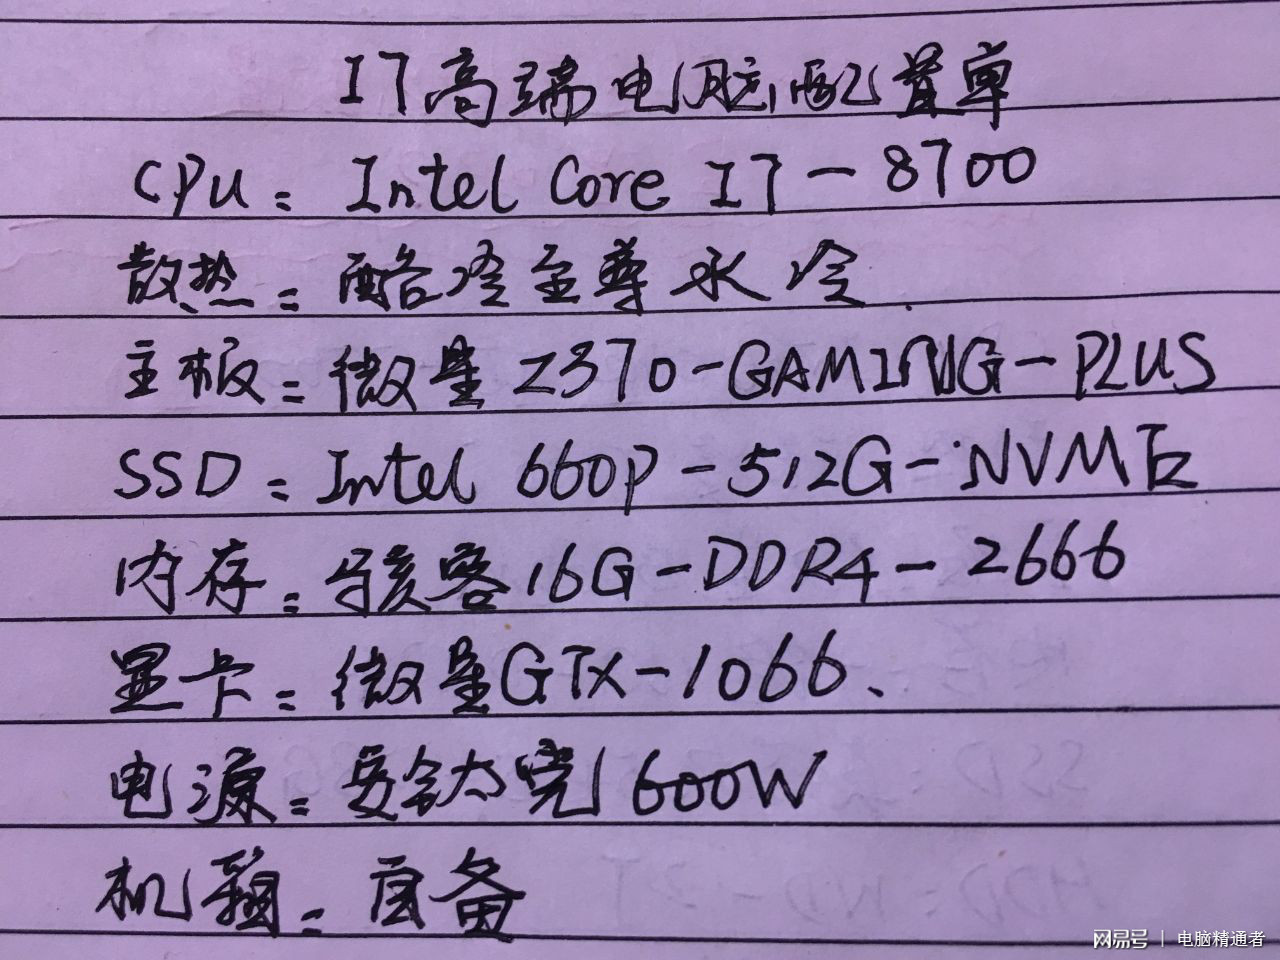 I7高端电脑配置单
CPU: Intel Core I7-8700
散热: 酷冷至尊水冷.
主板: 微星Z370-GAMING-PLUS
SSD: Intel 660p-512G-NVME
内存: 骇客16G-DDR4-2666
显卡: 微星GTX-1066、
电源: 安钛克600W
机箱: 自备
网易号 | 电脑精通者